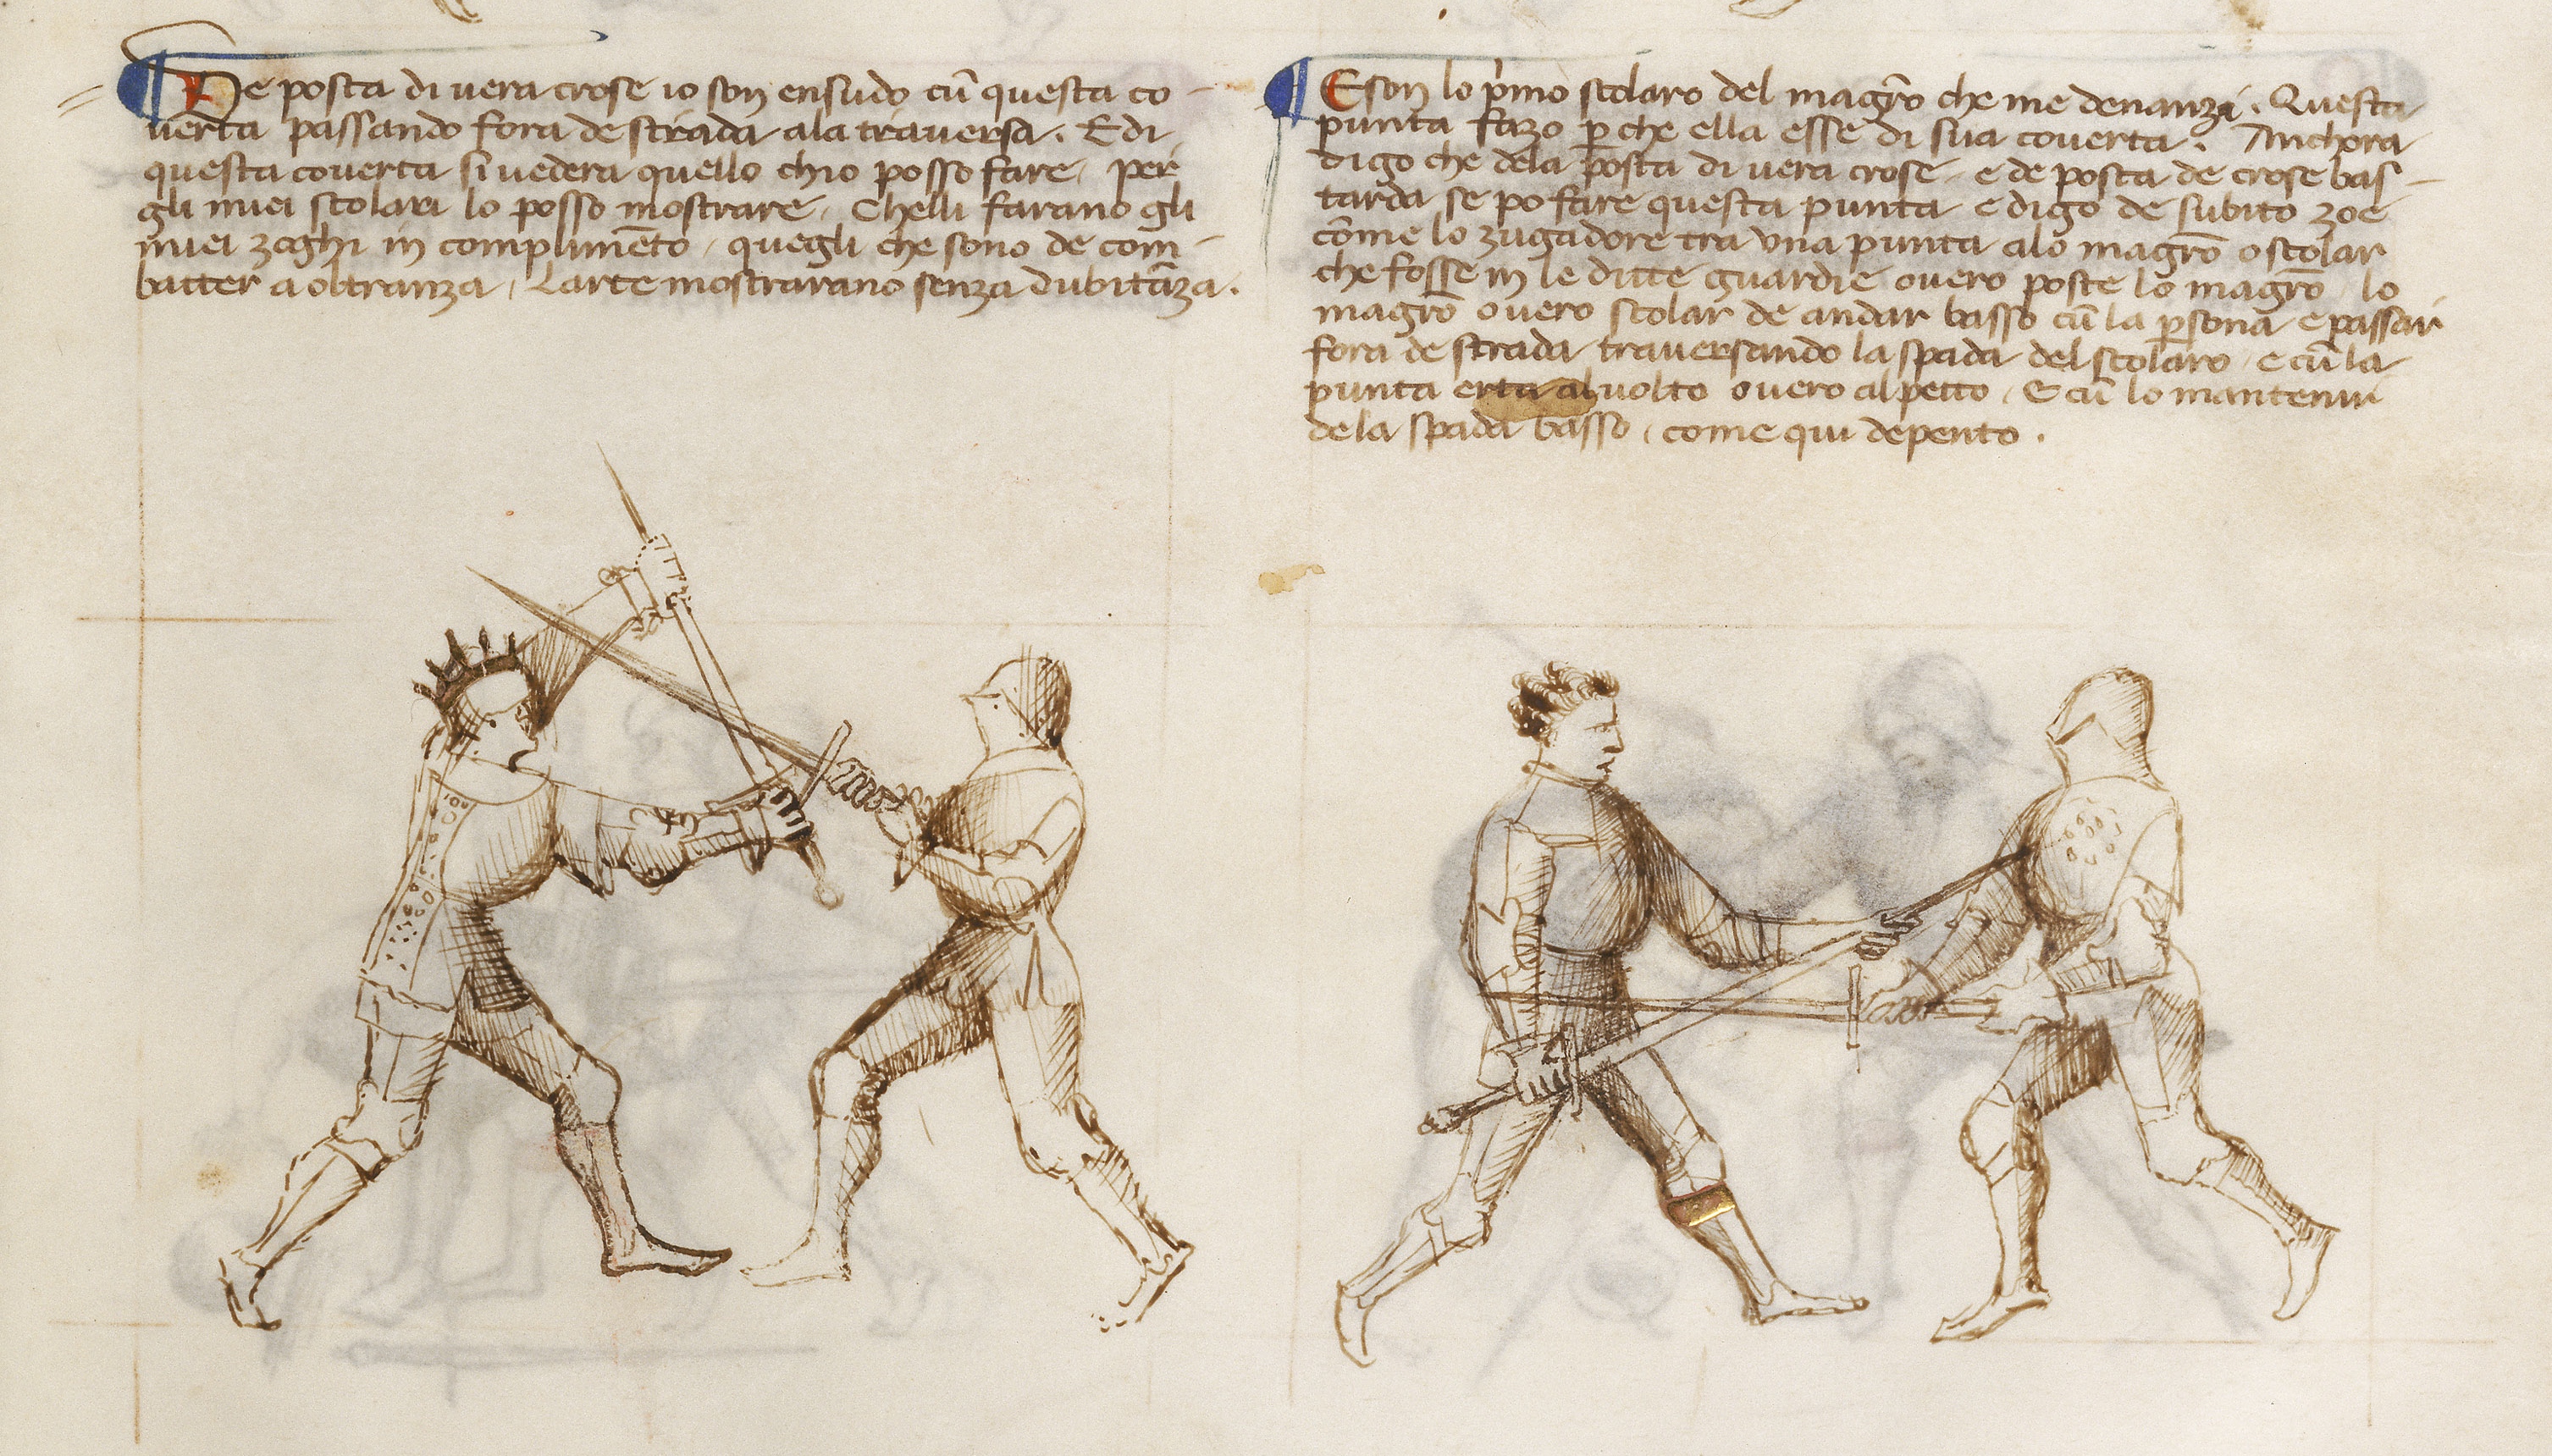 De posta di uera crose io son ensudo cũ questa co-
uerta passando fora de strada ala trauersa. E di
questa couerta si uedera quello chio posso fare, per
gli miei scolari lo posso mostrare, Chelli farano gli
miei zoghi in complimẽto, quegli che sono de com-
batter a oltranza, Larte mostrarano senza dubitãza.
E son lo p'mo scolaro del magr̃o che me denanzi. Questa
punta fazo p che ella esse di sua couerta. Anchora
digo che dela posta di uera crose, e de posta de crose bas-
tarda se po fare questa punta e digo de subito zoe
cõme lo zugadore tra una punta alo magr̃o o scolar
che fosse in le ditte guardie ouero poste lo magr̃o lo
magr̃o ouero scolar de andar basso cũ la psona e passar
fora de strada trauersando la spada del scolaro, e cũ la
punta erta al uolto ouero al petto, E cũ lo mantenir
de la spada basso, come qui depento.